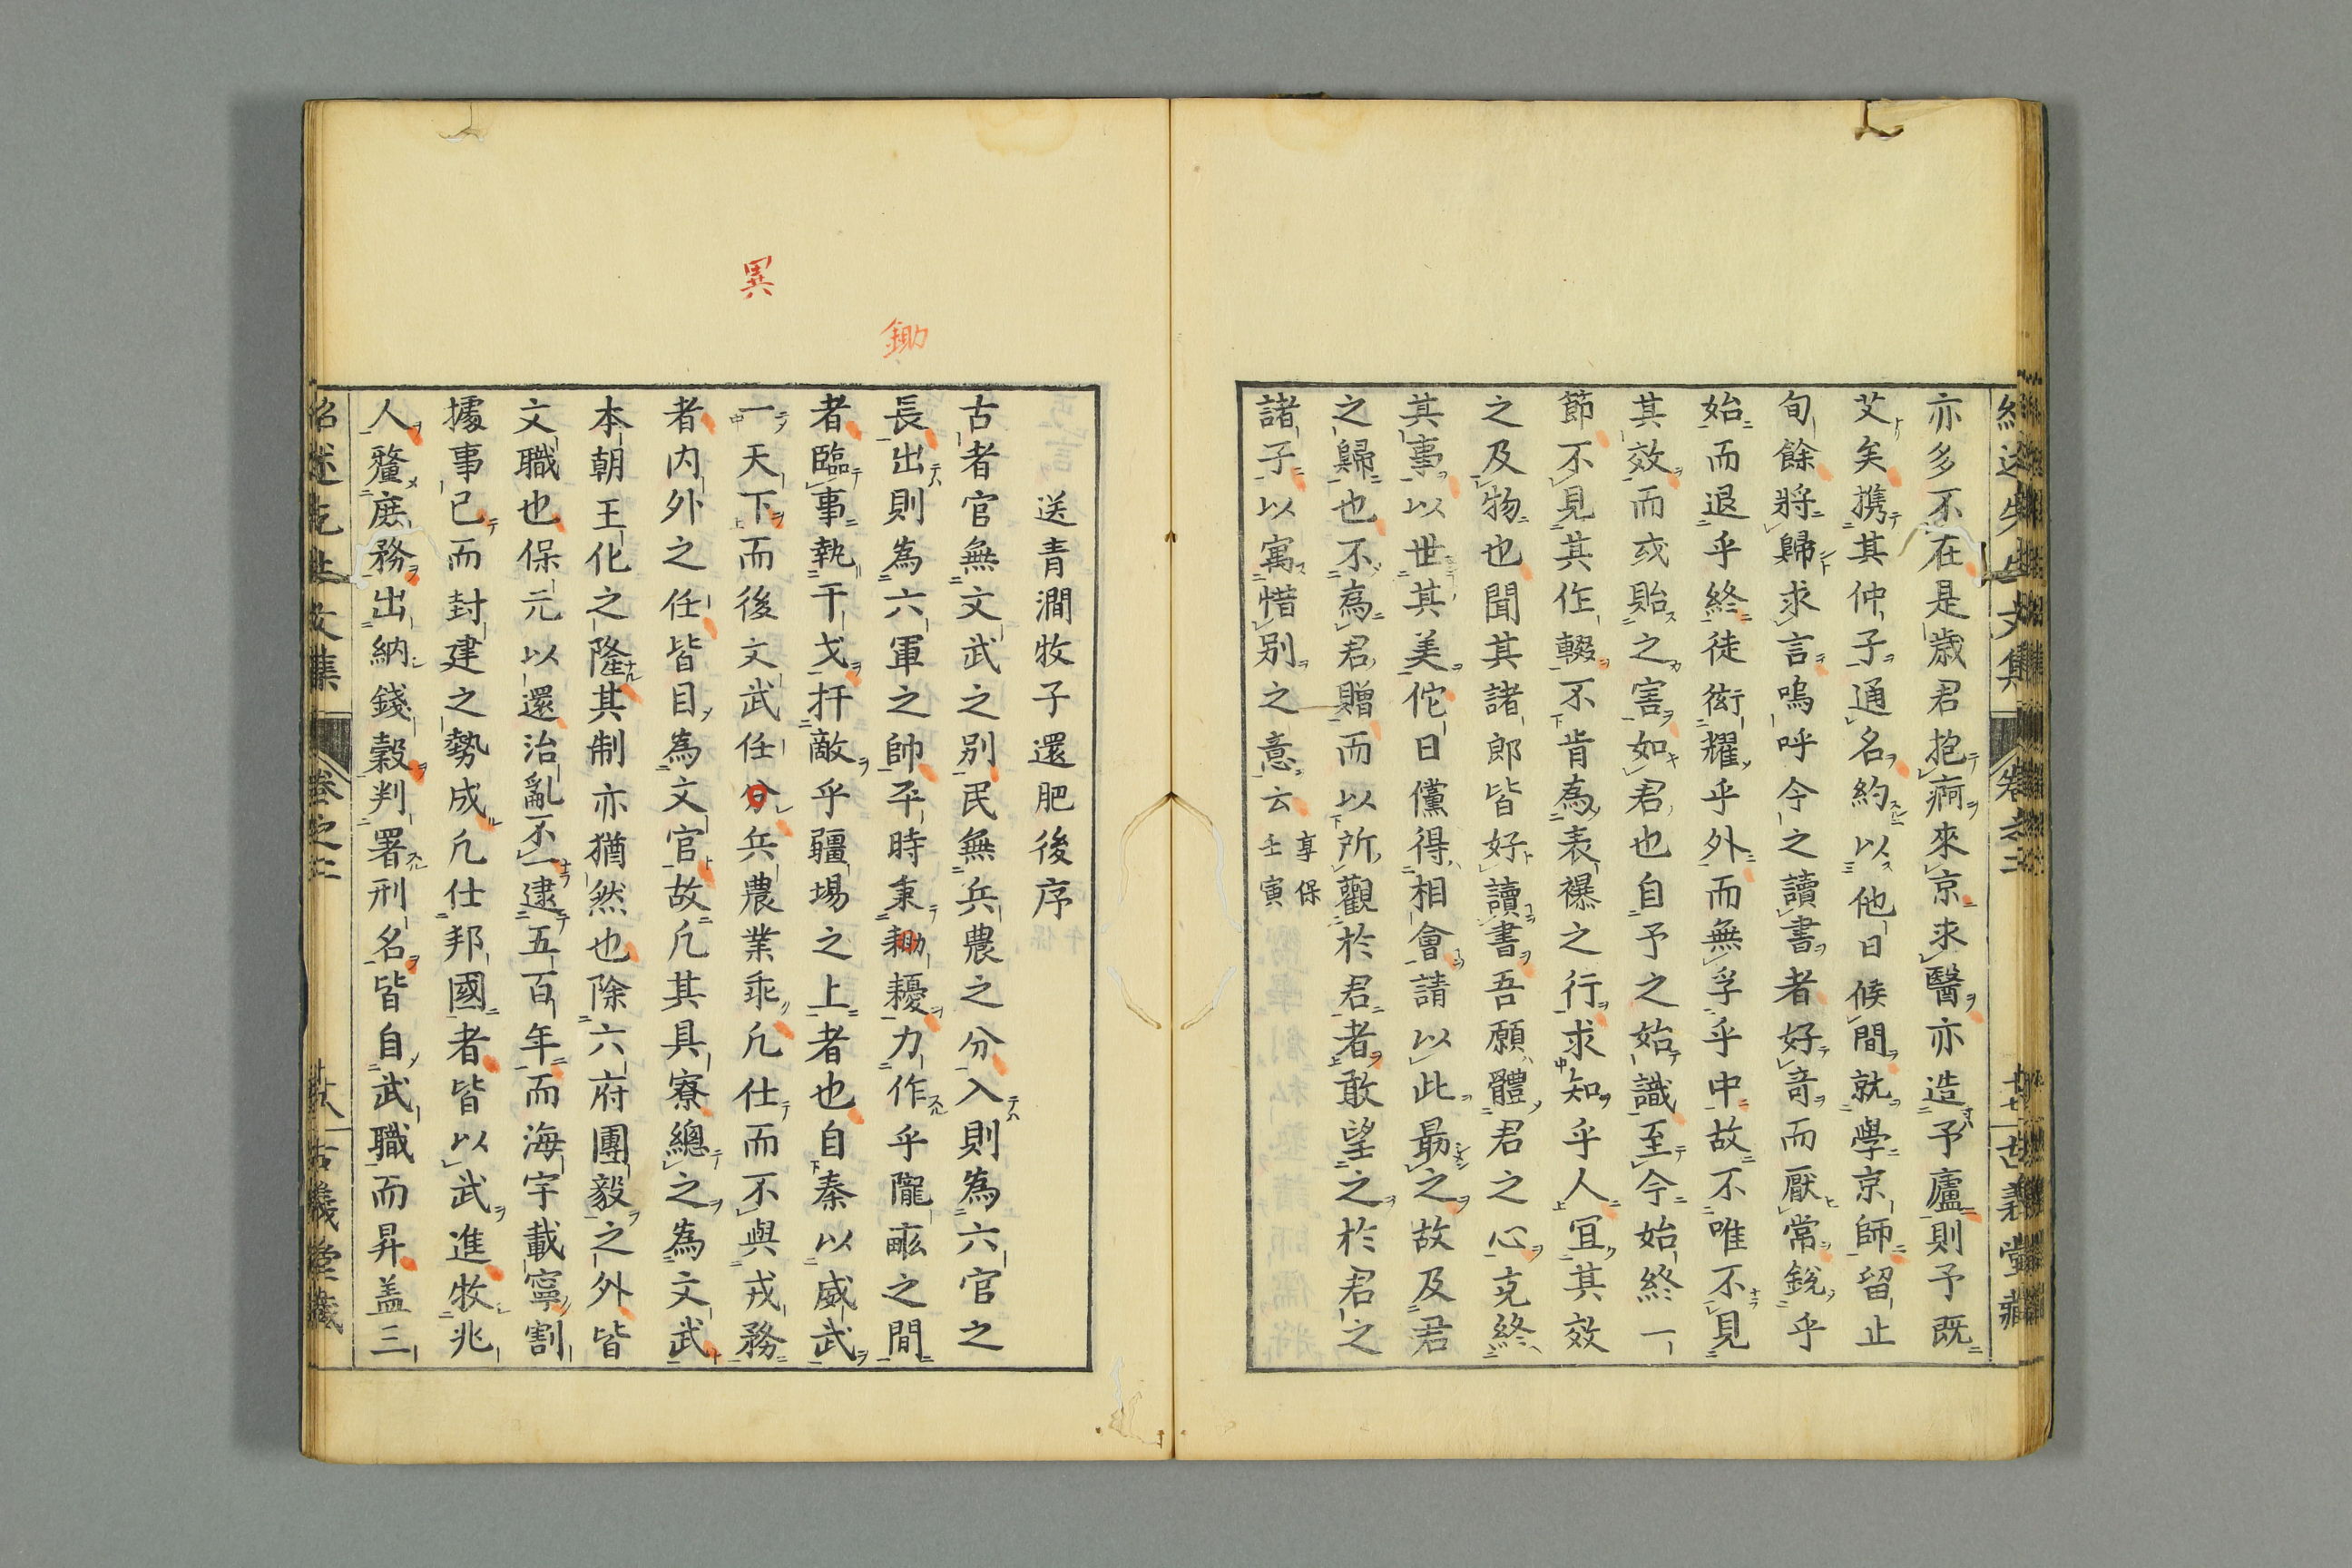 亦多不在是歳君抱痾來京求醫亦造予廬則予既
艾矣携其仲子通名約以他日候間就學京師留止
旬餘將歸求言嗚呼今之讀書者好竒而厭常銳乎
始而退乎終徒衒耀乎外而無孚乎中故不唯不見
其效而或貽之害如君也自予之始識至今始終一
節不見其作輟不肯為表襮之行求知乎人冝其效
之及物也聞其諸郎皆好讀書吾願體君之心克終
其事以世其美佗日儻得相會請以此勗之故及君
之歸也不為君贈而以所觀於君者敢望之於君之
諸子以寓惜別之意云 享保壬寅
異
鋤
送青澗牧子還肥後序
古者官無文武之別民無兵農之分入則為六官之
長出則為六軍之帥平時秉耡耰力作乎隴畞之間
者臨事執干戈扞敵乎疆埸之上者也自秦以威武
一天下而後文武任分兵農業乖凢仕而不與戎務
者内外之任皆目為文官故凢其具寮總之為文武
本朝王化之隆其制亦猶然也除六府團毅之外皆
文職也保元以還治亂不一逮五百年而海宇載寧割
據事已而封建之勢成凢仕邦國者皆以武進牧兆
人釐庶務出納錢穀判署刑名皆自武職而昇盖三
紹述先生文集 卷之三 古義堂藏